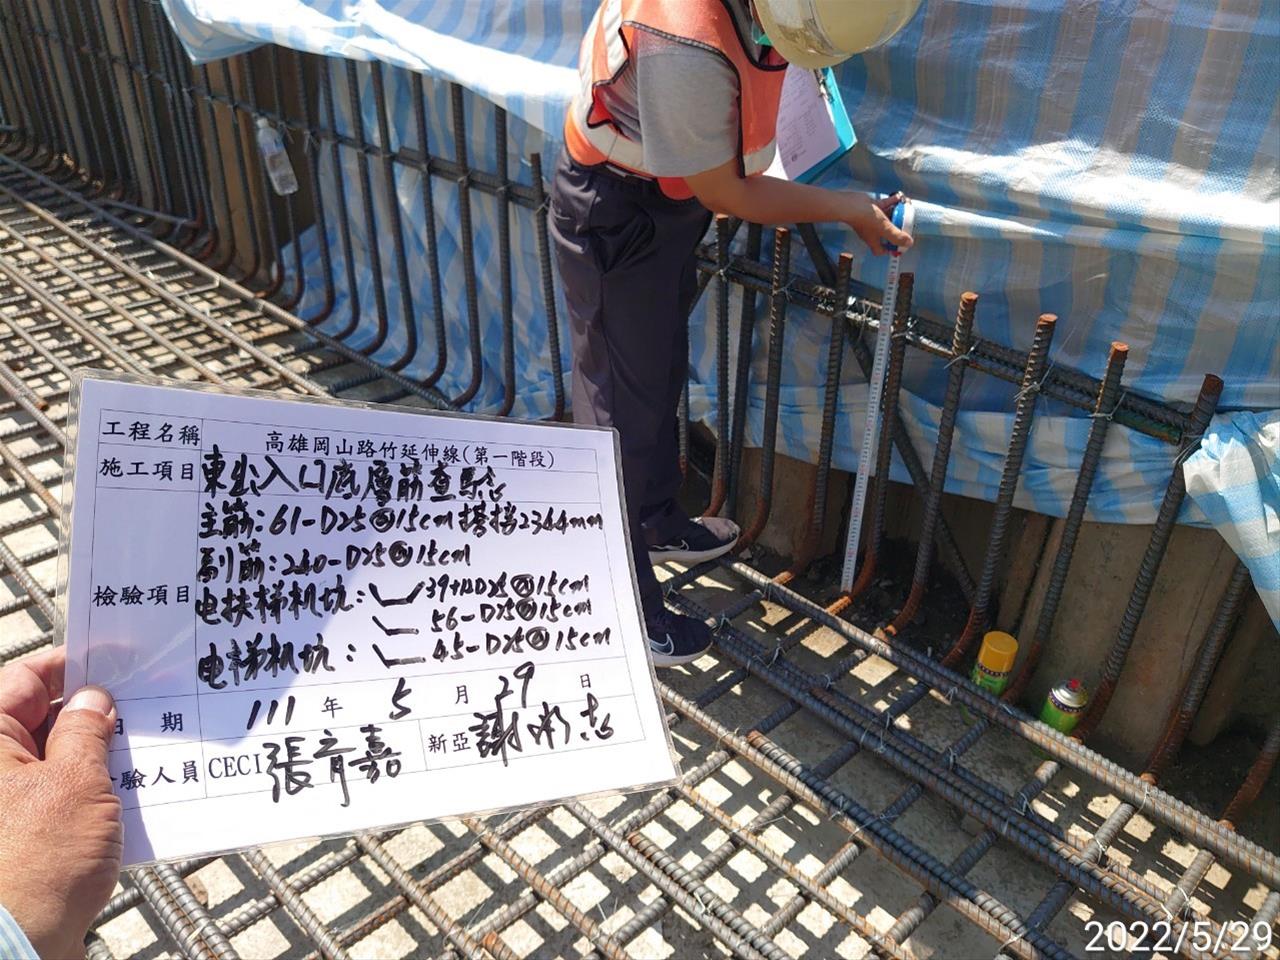 工程名稱 高雄岡山路竹延伸線(第一階段)
施工項目 東出入口底層筋查驗
檢驗項目
主筋:61-D25@15cm 搭接2344mm
副筋:240-D25@15cm
电扶梯机坑: 39+12D25@15cm
56-D25@15cm
电梯机坑: 45-D25@15cm
日期 111 年 5 月 29 日
驗人員 CECI 張育嘉 新亞 謝
2022/5/29